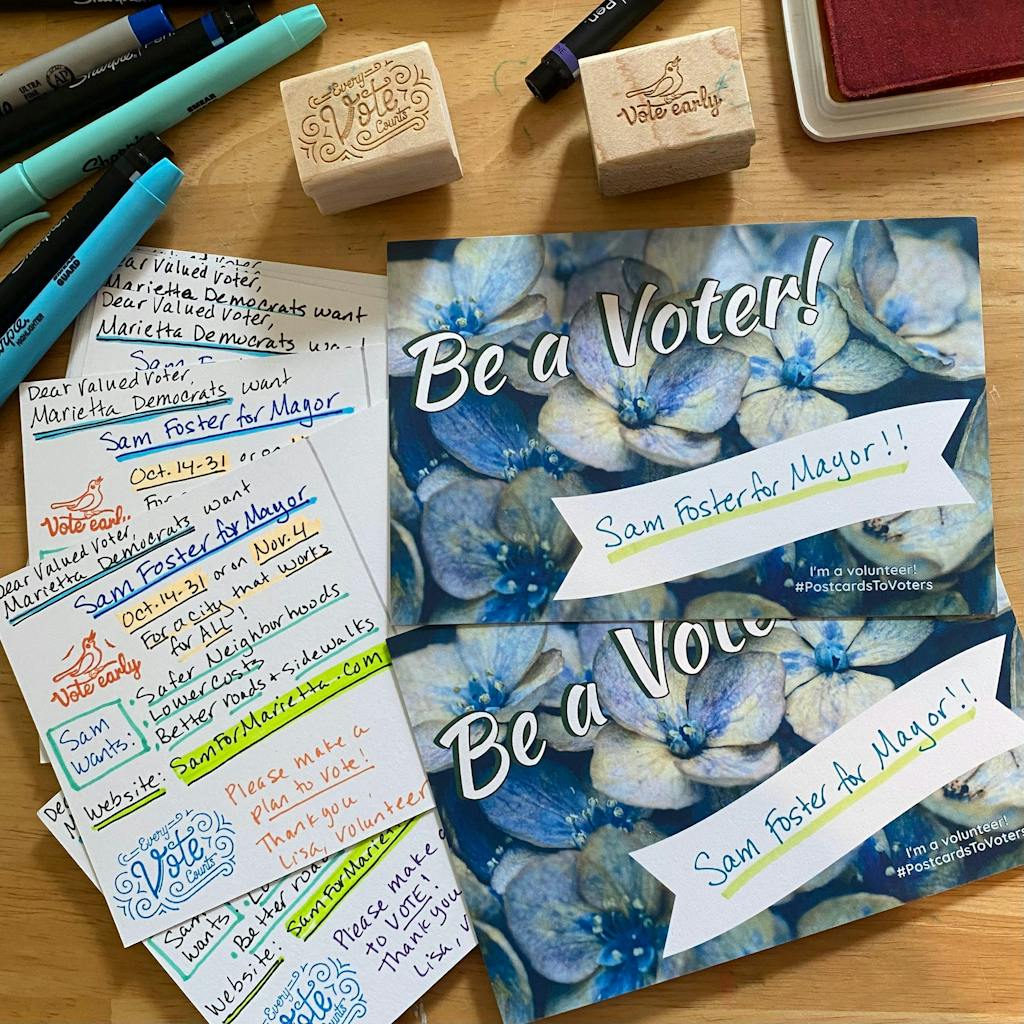 ULTRA FINE
AP
Sharpie
Pen.
Sharpie
SMEAR
Sharpie
SMEAR GUARD
HIGHLIGHTER
Every
Vote
Counts
Pen.
Vote early
Dear Valued Voter,
Marietta Democrats want
Dear Valued Voter,
Marietta Democrats
Dear Valued Voter,
Marietta Democrats want
Sam Foster for Mayor
Oct. 14-31 or on
For
Vote
Dear Valued Voter,
Marietta Democrats want
Sam Foster for Mayor
Oct. 14-31 or on Nov. 4
For a city that works
for ALL!
Vote early
Sam
wants:
· Safer Neighborhoods
· Lower Costs
· Better roads + sidewalks
Website: SamForMarietta.com
Every
Vote
Counts
Please make a
plan to vote!
Thank you,
Lisa, volunteer
Sam
wants:
Better
Website: SamForMarie
Every
Vote
Counts
Please make
to VOTE!
Thank you
Lisa, v
Be a Voter!
Sam Foster for Mayor!!
I'm a volunteer!
#PostcardsToVoters
Be a Vote
Sam Foster for Mayor!!
I'm a volunteer!
#PostcardsToVoters